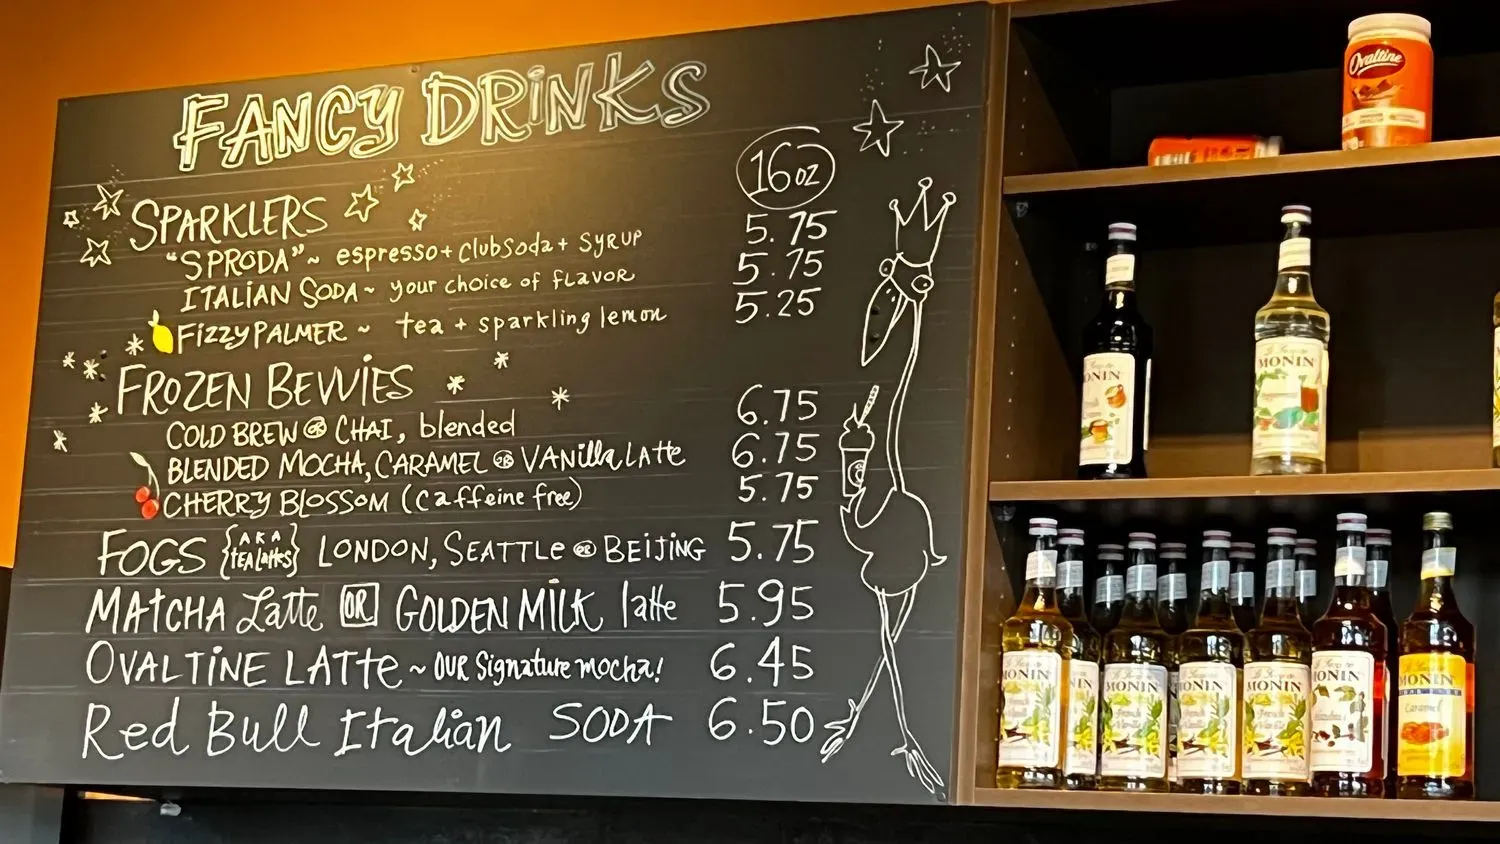 FANCY DRINKS
16oz
SPARKLERS
"SPRODA" ~ espresso + ClubSoda + SYRUP 5.75
ITALIAN SODA ~ your choice of flavor 5.75
FIZZY PALMER ~ tea + sparkling lemon 5.25
FROZEN BEVVIES
COLD BREW OR CHAI, blended 6.75
BLENDED MOCHA, CARAMEL OR VANilla LAtte 6.75
CHERRY BLOSSOM (Caffeine free) 5.75
FOGS {AKA TEA lattes} LONDON, SEATTLE OR BEIJING 5.75
MAtCHA Latte OR GOLDEN MiLK latte 5.95
OVALTiNE LATte ~ OUR Signature mocha! 6.45
Red Bull Italian SODA 6.50
Ovaltine
MONIN
MONIN
MONIN
MONIN
MONIN
MONIN
MONIN
MONIN
MONIN
Caramel